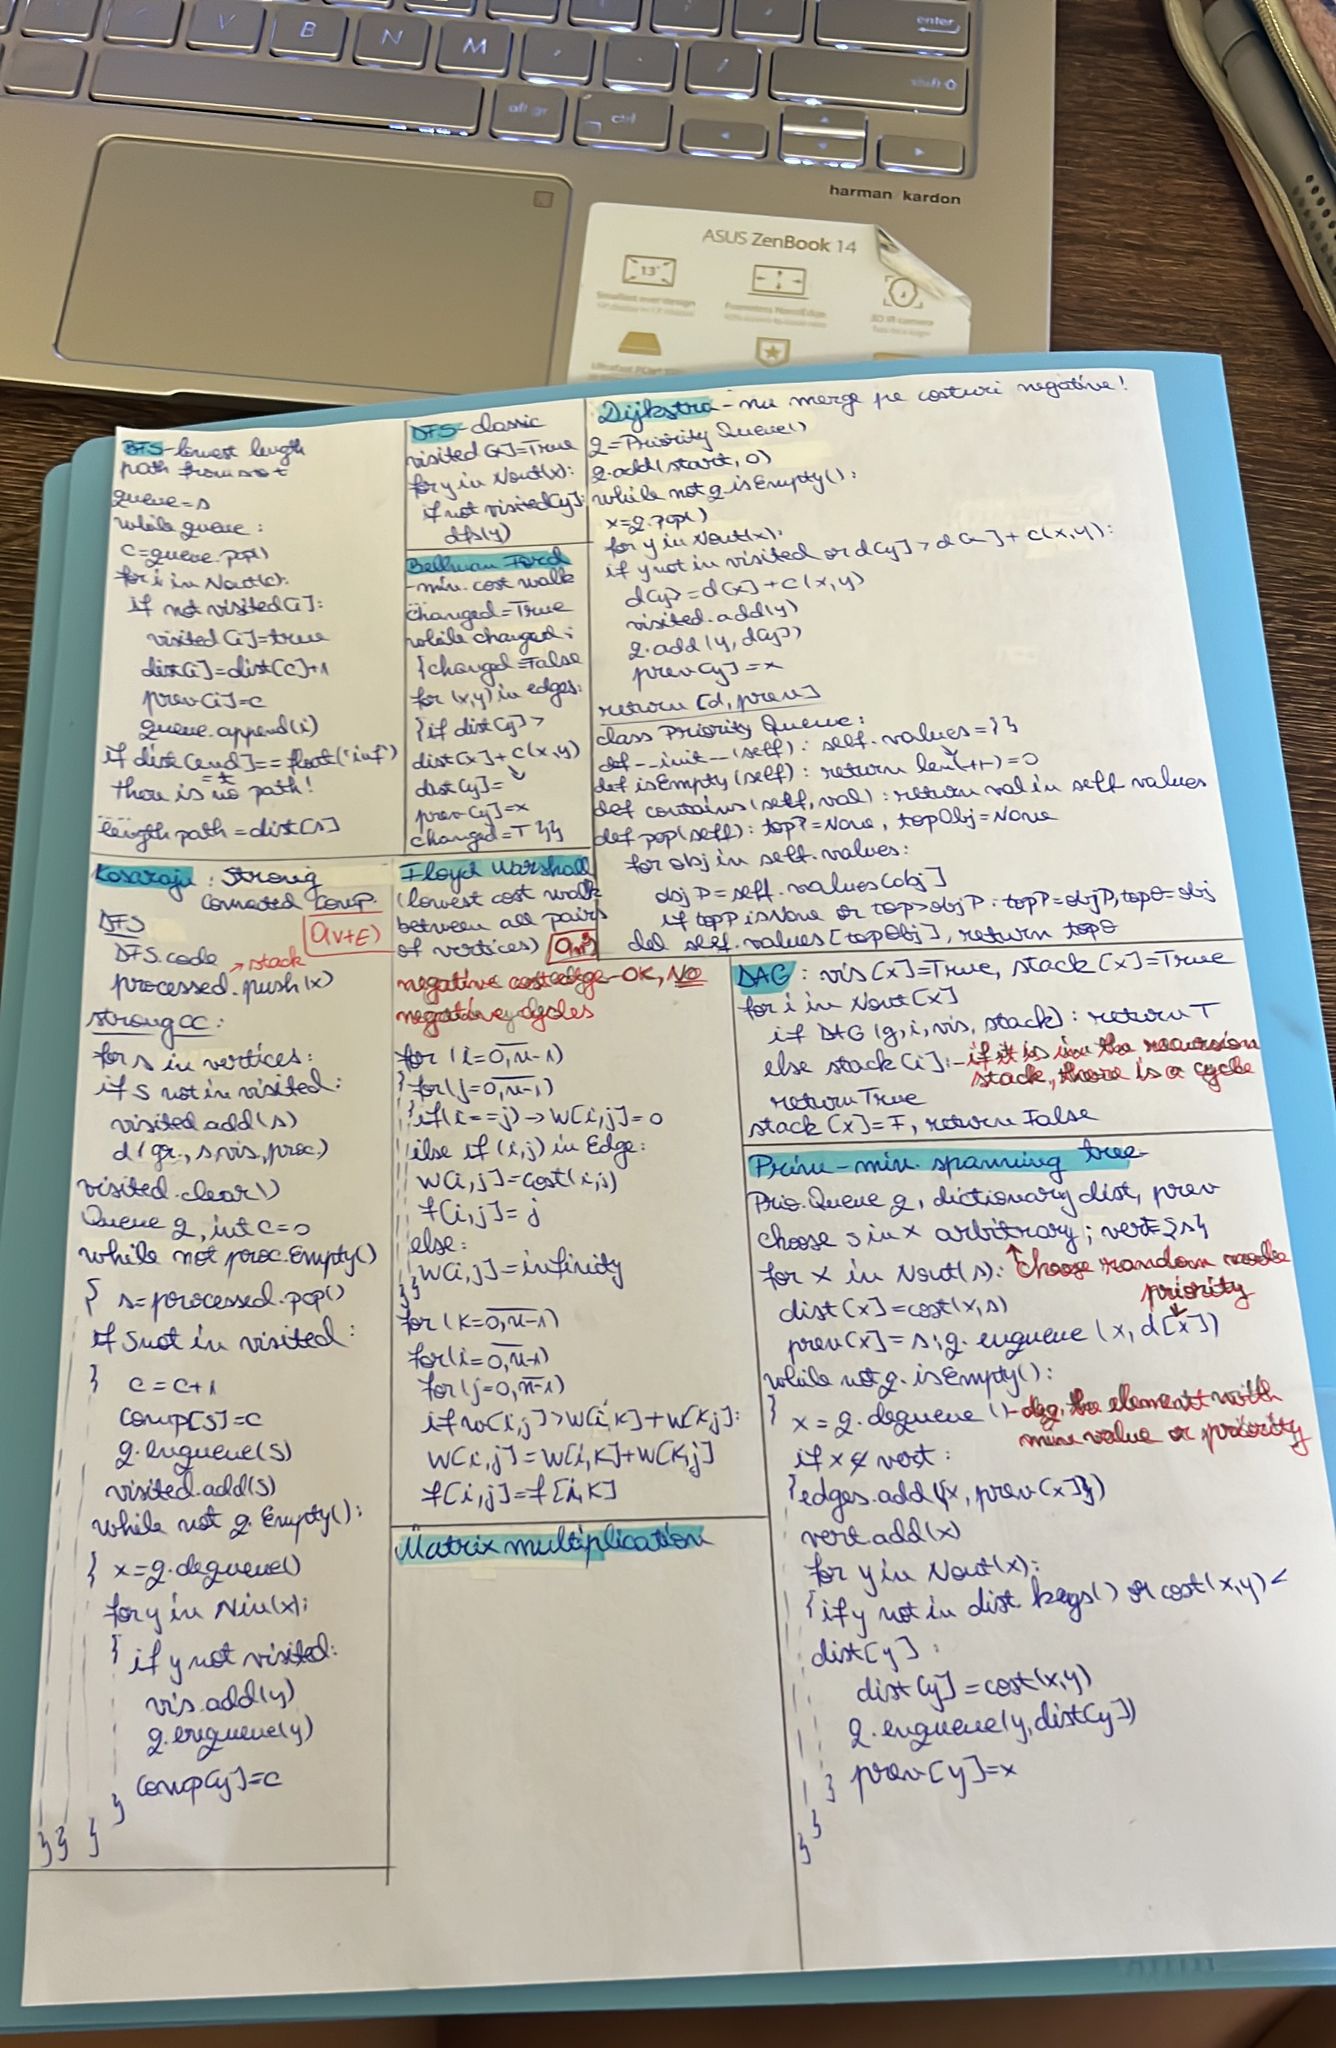 enter
V
B
N
M
shift
alt gr
ctrl
harman / kardon
ASUS ZenBook 14
13"
Frameless NanoEdge
3D IR camera
BFS - lowest length
path from s o t
queue = s
while queue :
c = queue.pop()
for i in Nout(c):
if not visited[i]:
visited[i] = true
dist[i] = dist[c]+1
prev[i] = c
queue.append(i)
if dist[end] == float('inf')
= t
there is no path!
length path = dist[s]
DFS - classic
visited[x] = True
for y in Nout(x):
if not visited[y]:
dfs(y)
Bellman Ford
- min. cost walk
changed = True
while changed :
{ changed = False
for (x,y) in edges:
{ if dist[y] >
dist[x] + c(x,y)
dist[y] =
prev[y] = x
changed = T }}
Dijkstra - nu merge pe costuri negative!
q = Priority Queue()
q.add(start, 0)
while not q.isEmpty():
x = q.pop()
for y in Nout(x):
if y not in visited or d[y] > d[x] + c(x,y):
d[y] = d[x] + c(x,y)
visited.add(y)
q.add(y, d[y])
prev[y] = x
return [d, prev]
class Priority Queue:
def __init__(self): self.values = {}
def isEmpty(self): return len(-"-) = 0
def contains(self, val): return val in self.values
def pop(self): topP = None, topObj = None
for obj in self.values:
objP = self.values[obj]
if topP is None or top > objP: topP = objP, topO = obj
del self.values[topObj], return topO
Kosaraju : Strong
Connected Comp.
O(V+E)
DFS
DFS.code
→ stack
processed.push(x)
strong CC:
for s in vertices:
if s not in visited:
visited.add(s)
d(gr., s, vis, proc.)
visited.clear()
Queue q, int c = 0
while not proc.Empty()
{ s = processed.pop()
if s not in visited :
} c = c+1
comp[s] = c
q.enqueue(s)
visited.add(s)
while not q.Empty():
{ x = q.dequeue()
for y in Nin(x):
{ if y not visited:
vis.add(y)
q.enqueue(y)
comp[y] = c
}
}} }
Floyd Warshall
(lowest cost walk
between all pairs
of vertices) O(n³)
negative cost edge - OK, No
negative cycles
for (i=0,n-1)
{ for (j=0,n-1)
{ if (i==j) → W[i,j] = 0
else if (i,j) in Edge:
W[i,j] = cost(i,j)
f[i,j] = j
else:
W[i,j] = infinity
}}
for (k=0,n-1)
for (i=0,n-1)
for (j=0,n-1)
if w[i,j] > W[i,k] + W[k,j]:
W[i,j] = W[i,k] + W[k,j]
f[i,j] = f[i,k]
Matrix multiplication
DAG : vis[x] = True, stack[x] = True
for i in Nout[x]
if DAG(g, i, vis, stack): return T
else stack[i]: - if it is in the recursion
stack, there is a cycle
return True
stack[x] = F, return False
Prim - min. spanning tree
Prio.Queue q, dictionary dist, prev
choose s in x arbitrary ; vert = {s}
for x in Nout(s): choose random node
priority
dist(x) = cost(x,s)
prev(x) = s; q.enqueue(x, d[x])
while not q.isEmpty():
} x = q.dequeue() - deq. the element with
min value or priority
if x ∉ vert :
{ edges.add({x, prev[x]})
vert.add(x)
for y in Nout(x):
{ if y not in dist keys() or cost(x,y) <
dist[y] :
dist[y] = cost(x,y)
q.enqueue(y, dist[y])
} prev[y] = x
}
}